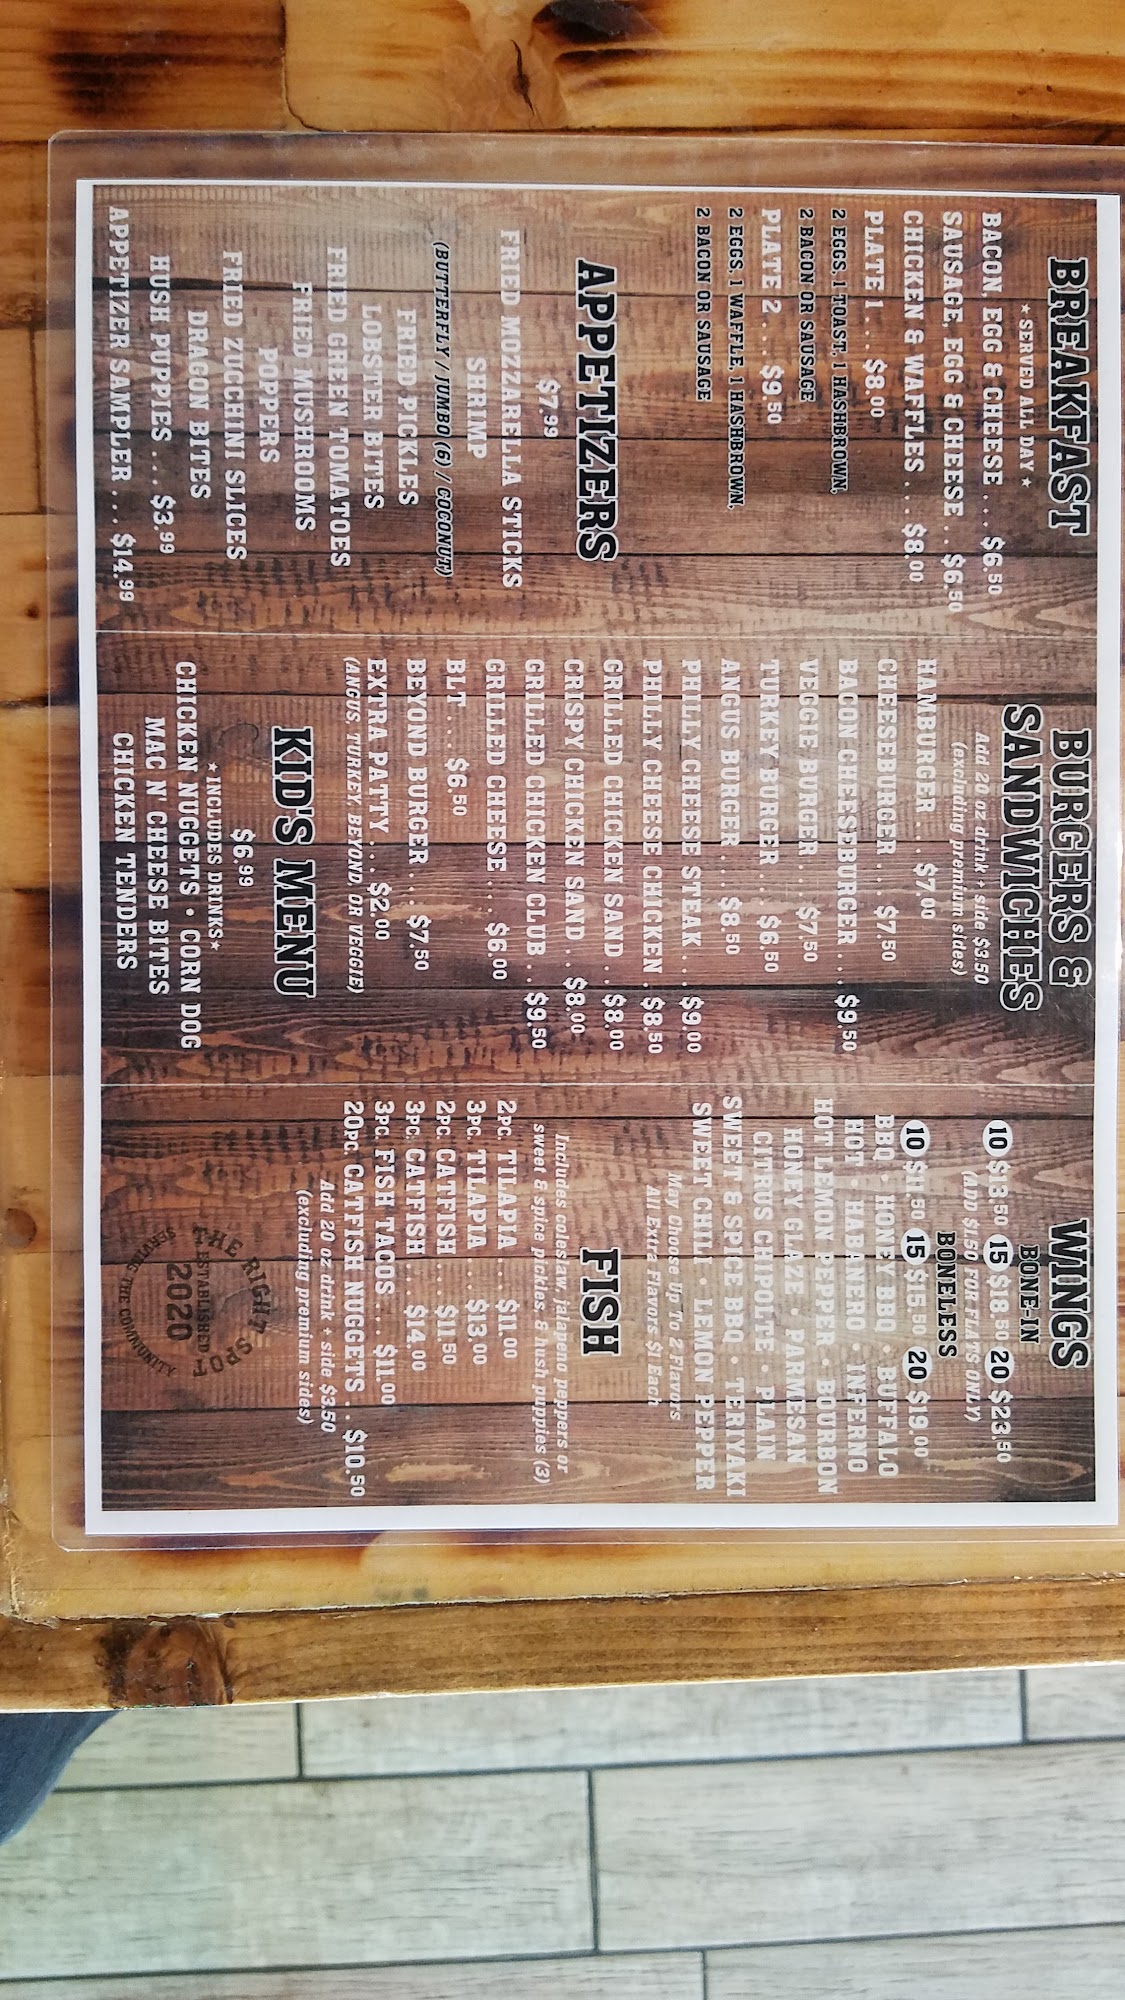 BREAKFAST
★ SERVED ALL DAY ★
BACON, EGG & CHEESE .... $6.50
SAUSAGE, EGG & CHEESE .. $6.50
CHICKEN & WAFFLES ... $8.00
PLATE 1 ... $8.00
2 EGGS, 1 TOAST, 1 HASHBROWN,
2 BACON OR SAUSAGE
PLATE 2 ... $9.50
2 EGGS, 1 WAFFLE, 1 HASHBROWN,
2 BACON OR SAUSAGE
APPETIZERS
$7.99
FRIED MOZZARELLA STICKS
SHRIMP
(BUTTERFLY / JUMBO (6) / COCONUT)
FRIED PICKLES
LOBSTER BITES
FRIED GREEN TOMATOES
FRIED MUSHROOMS
POPPERS
FRIED ZUCCHINI SLICES
DRAGON BITES
HUSH PUPPIES .... $3.99
APPETIZER SAMPLER .... $14.99
BURGERS &
SANDWICHES
Add 20 oz drink + side $3.50
(excluding premium sides)
HAMBURGER .... $7.00
CHEESEBURGER .... $7.50
BACON CHEESEBURGER ... $9.50
VEGGIE BURGER .... $7.50
TURKEY BURGER .... $6.50
ANGUS BURGER .... $8.50
PHILLY CHEESE STEAK ... $9.00
PHILLY CHEESE CHICKEN . $8.50
GRILLED CHICKEN SAND .. $8.00
CRISPY CHICKEN SAND ... $8.00
GRILLED CHICKEN CLUB .. $9.50
GRILLED CHEESE .... $6.00
BLT .... $6.50
BEYOND BURGER .... $7.50
EXTRA PATTY ... $2.00
(ANGUS, TURKEY, BEYOND, OR VEGGIE)
KID'S MENU
$6.99
★INCLUDES DRINKS★
CHICKEN NUGGETS • CORN DOG
MAC N' CHEESE BITES
CHICKEN TENDERS
WINGS
BONE-IN
10 $13.50 15 $18.50 20 $23.50
(ADD $1.50 FOR FLATS ONLY)
BONELESS
10 $11.50 15 $15.50 20 $19.00
BBQ • HONEY BBQ • BUFFALO
HOT • HABANERO • INFERNO
HOT LEMON PEPPER • BOURBON
HONEY GLAZE • PARMESAN
CITRUS CHIPOLTE • PLAIN
SWEET & SPICE BBQ • TERIYAKI
SWEET CHILI • LEMON PEPPER
May Choose Up To 2 Flavors
All Extra Flavors $1 Each
FISH
Includes coleslaw, jalapeno peppers or
sweet & spice pickles, & hush puppies (3)
2PC. TILAPIA .... $11.00
3PC. TILAPIA .... $13.00
2PC. CATFISH .... $11.50
3PC. CATFISH .... $14.00
3PC. FISH TACOS .... $11.00
20PC. CATFISH NUGGETS ... $10.50
Add 20 oz drink + side $3.50
(excluding premium sides)
THE RIGHT SPOT
ESTABLISHED
2020
SERVING THE COMMUNITY